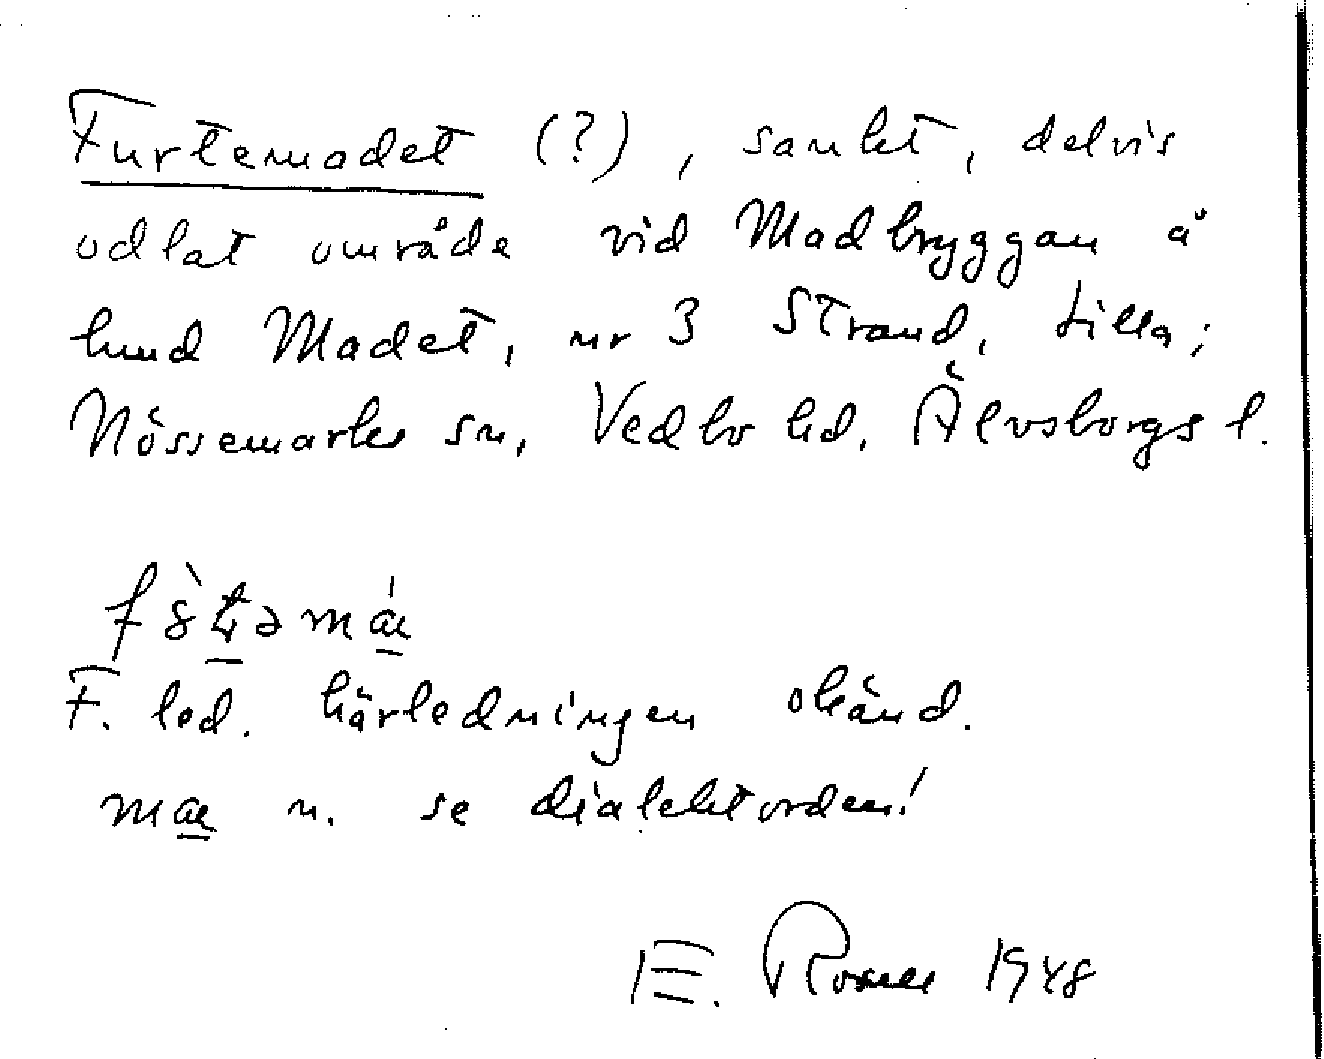 Furtemadet (?), sankt, delvis
odlat område vid Madbryggan å
lund Madet, nr 3 Strand, Lilla;
Nössemarks sn, Vedbo hd, Älvsborgs l.
F. led. härledningen okänd.
mɑɛ n. se dialektorden!
E. 1948